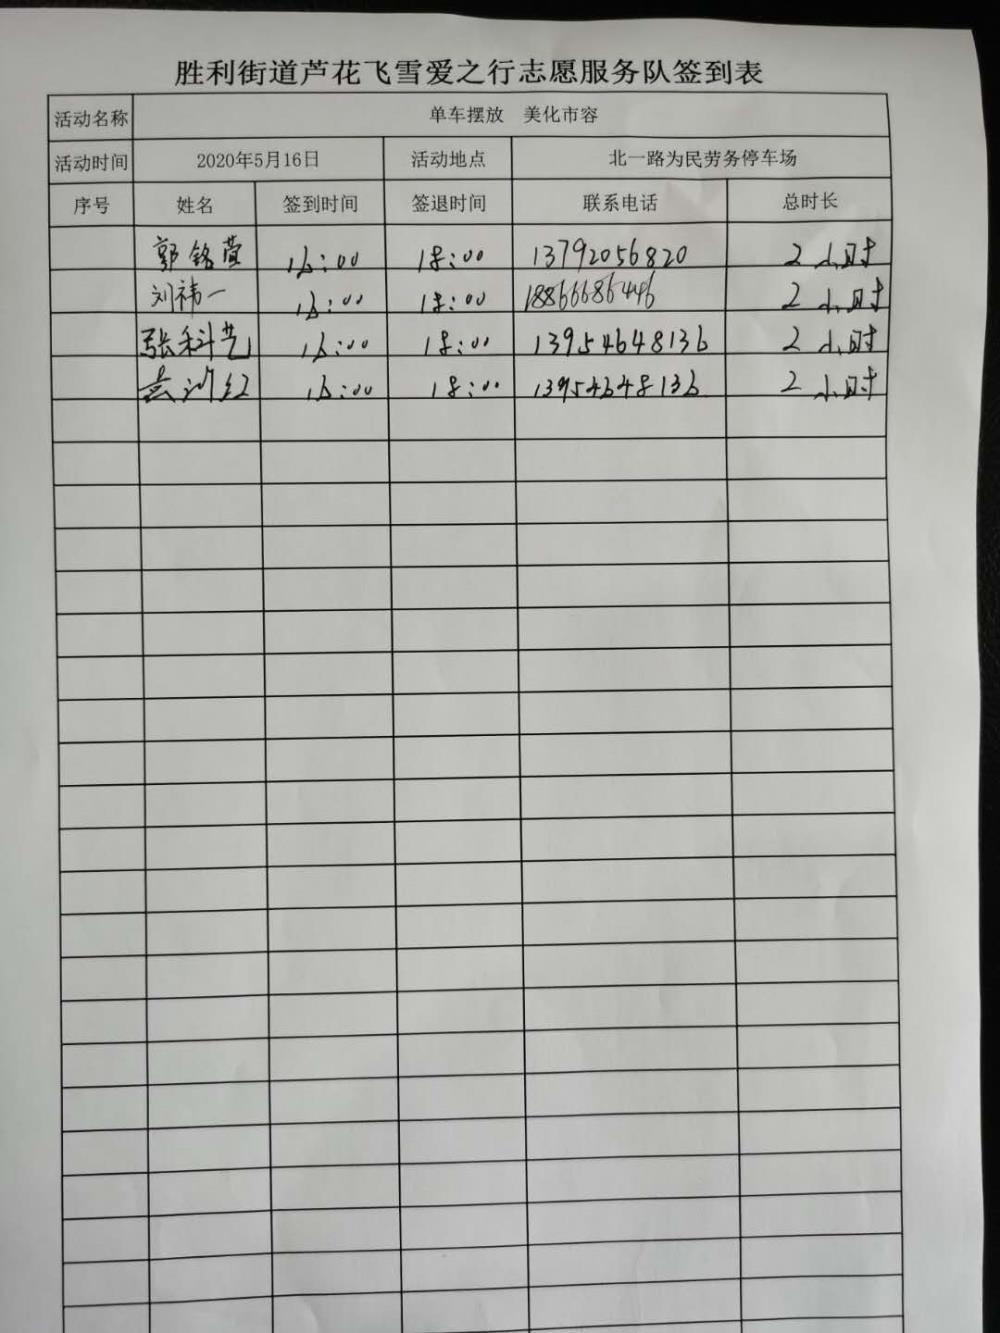 胜利街道芦花飞雪爱之行志愿服务队签到表
活动名称 单车摆放 美化市容
活动时间 2020年5月16日 活动地点 北一路为民劳务停车场
序号 姓名 签到时间 签退时间 联系电话 总时长
郭铭萱 16:00 18:00 13792056820 2小时
刘祎一 16:00 18:00 18866686446 2小时
张科艺 16:00 18:00 13954648136 2小时
16:00 18:00 13954648136 2小时